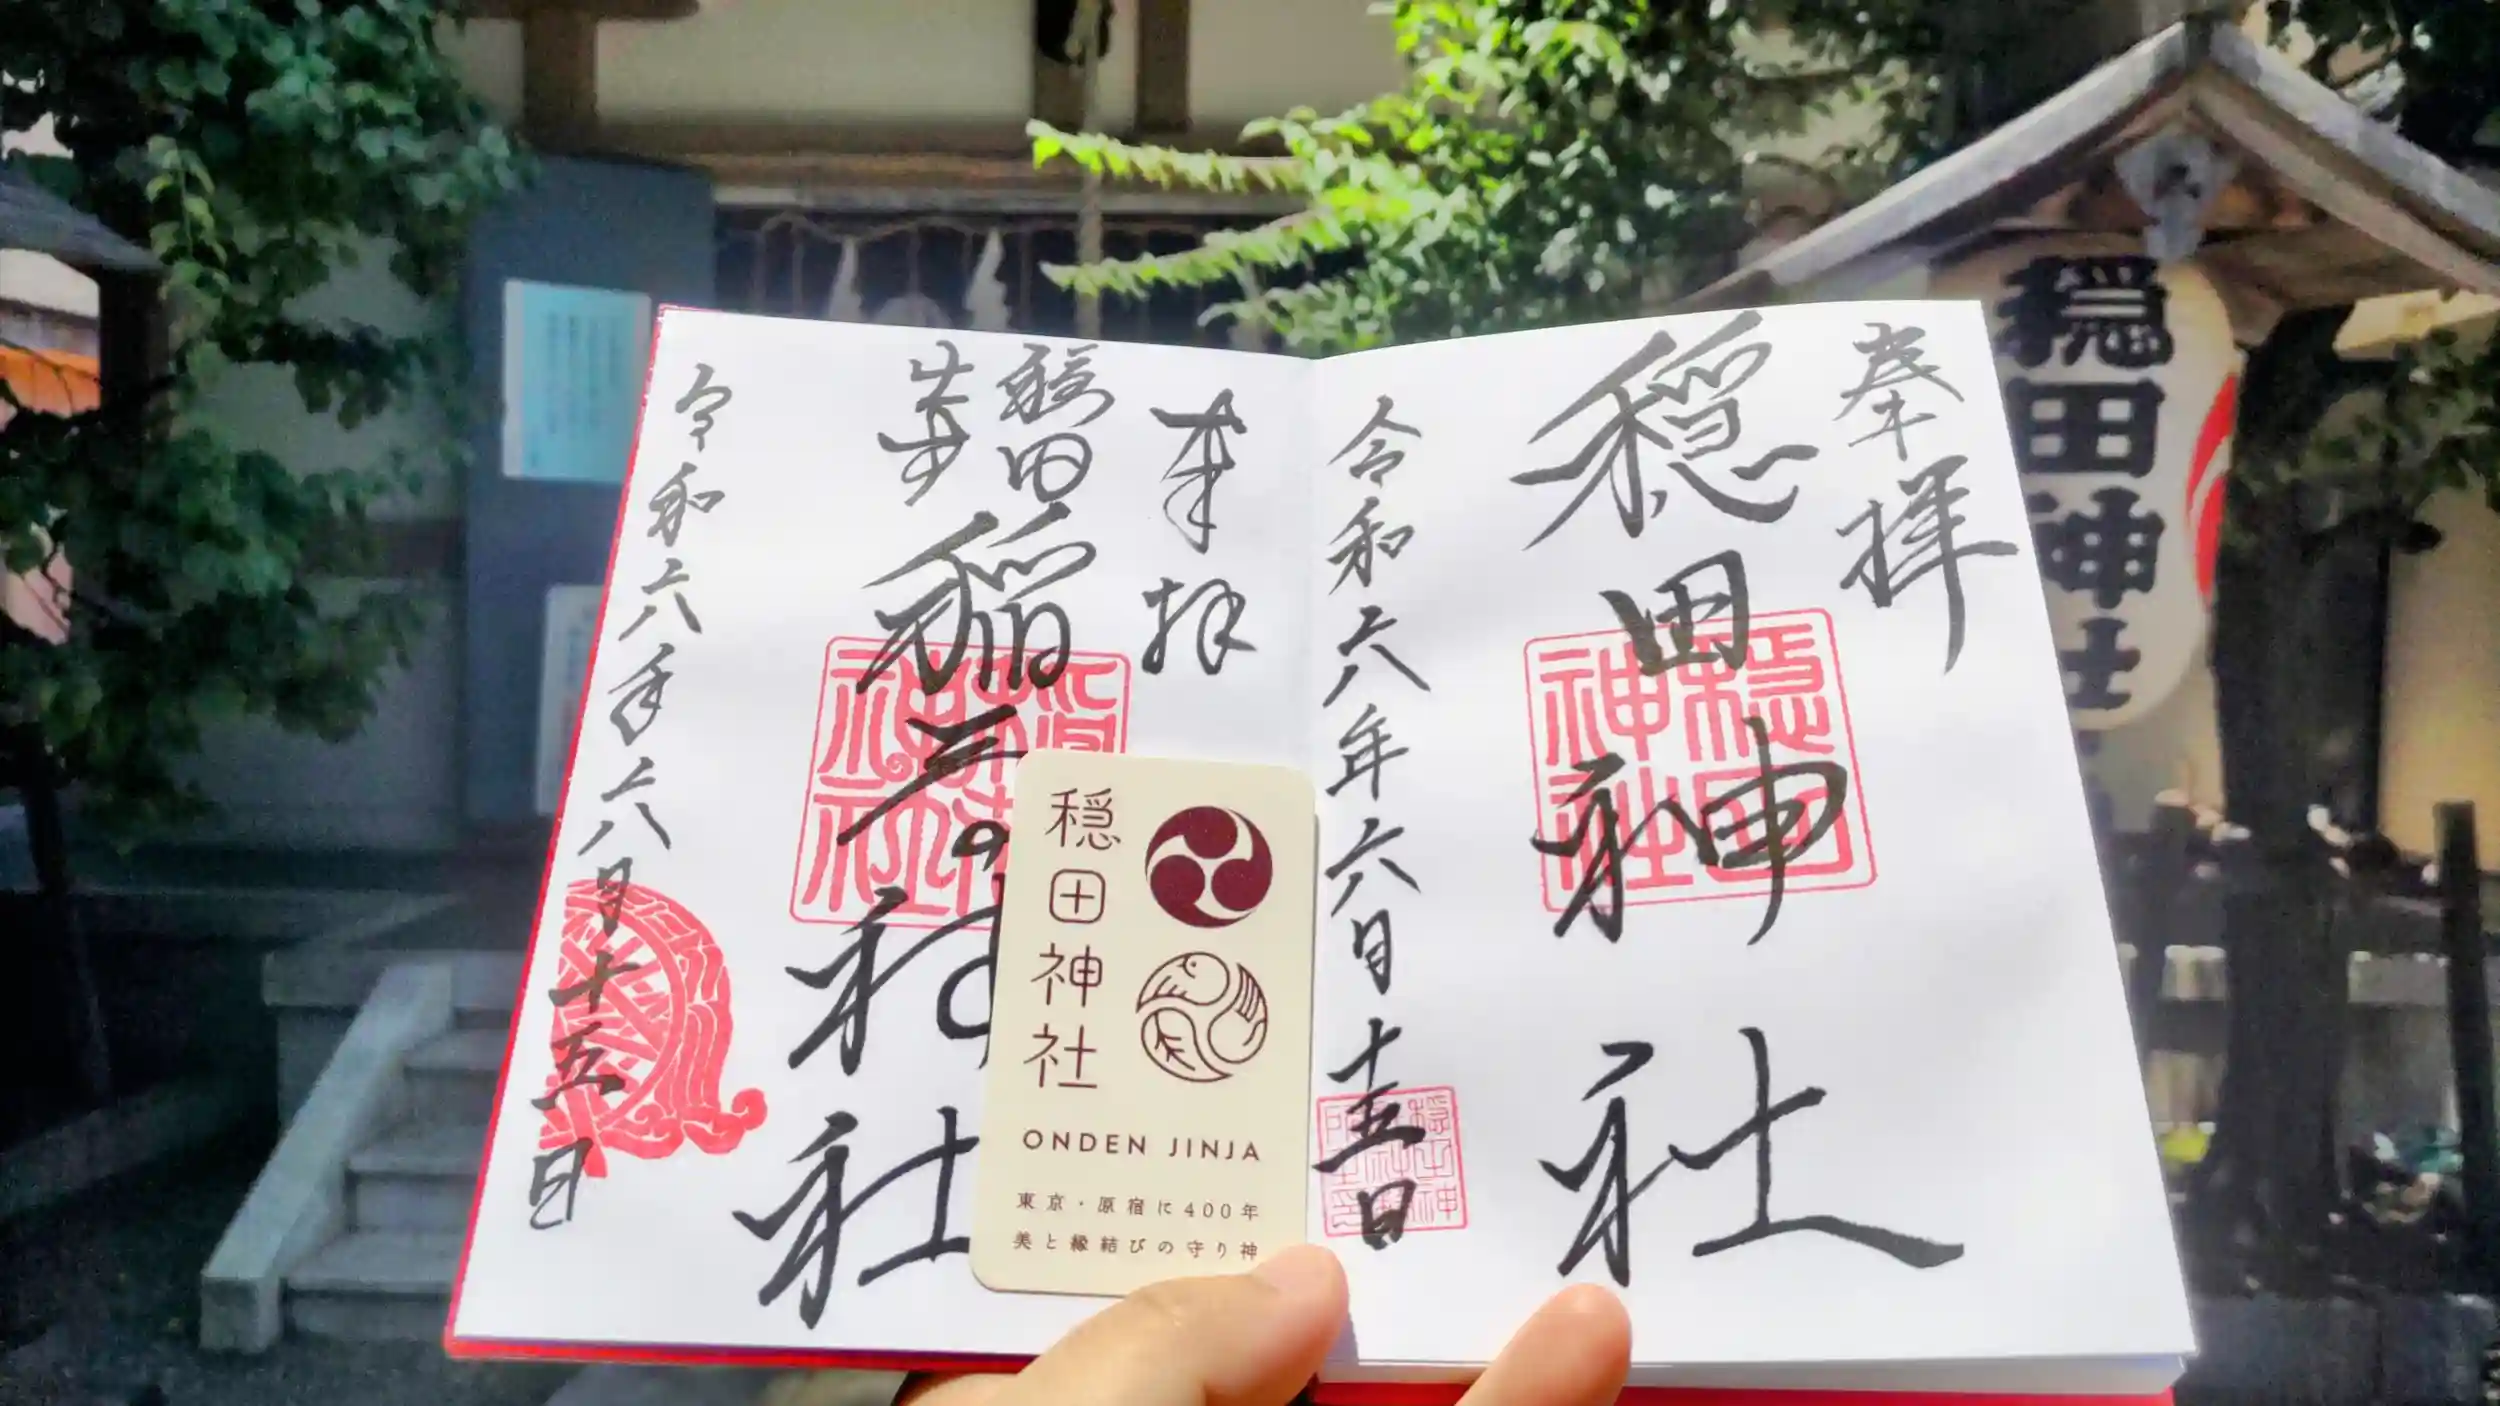 奉拝
穏田神社
令和六年六月十五日
奉拝
稲荷神社
令和六年六月十五日
穏田神社
ONDEN JINJA
東京・原宿に400年
美と縁結びの守り神
穏田神社